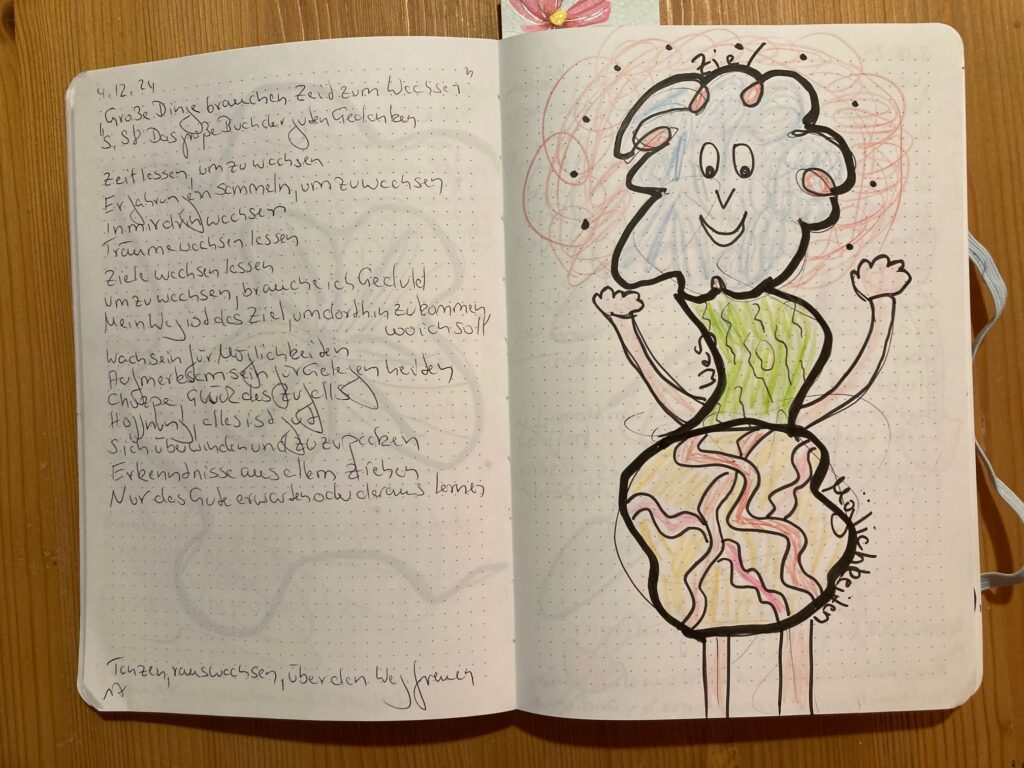 4.12.24
"Große Dinge brauchen Zeid zum Wachsen"
S. 58. Das große Buch der guten Gedanken
Zeit lassen, um zu wachsen
Erfahrungen sammeln, um zu wachsen
In mir drin wachsen
Träume wachsen lassen
Ziele wachsen lassen
um zu wachsen, brauche ich Geduld
Mein Weg ist das Ziel, um dorthin zu kommen,
wo ich soll
wach sein für Möglichkeiden
Aufmerksam sein für Gelegenheiden
Chuzpe, Glück des Zufalls
Hoffnung, alles ist gud
Sich überwinden und zuzupacken
Erkenndnisse aus allem ziehen
Nur das Gute erwarten oder daraus lernen
Tanzen, rauswachsen, über den Weg freuen
Ziel
Weg
Möglichkeiden